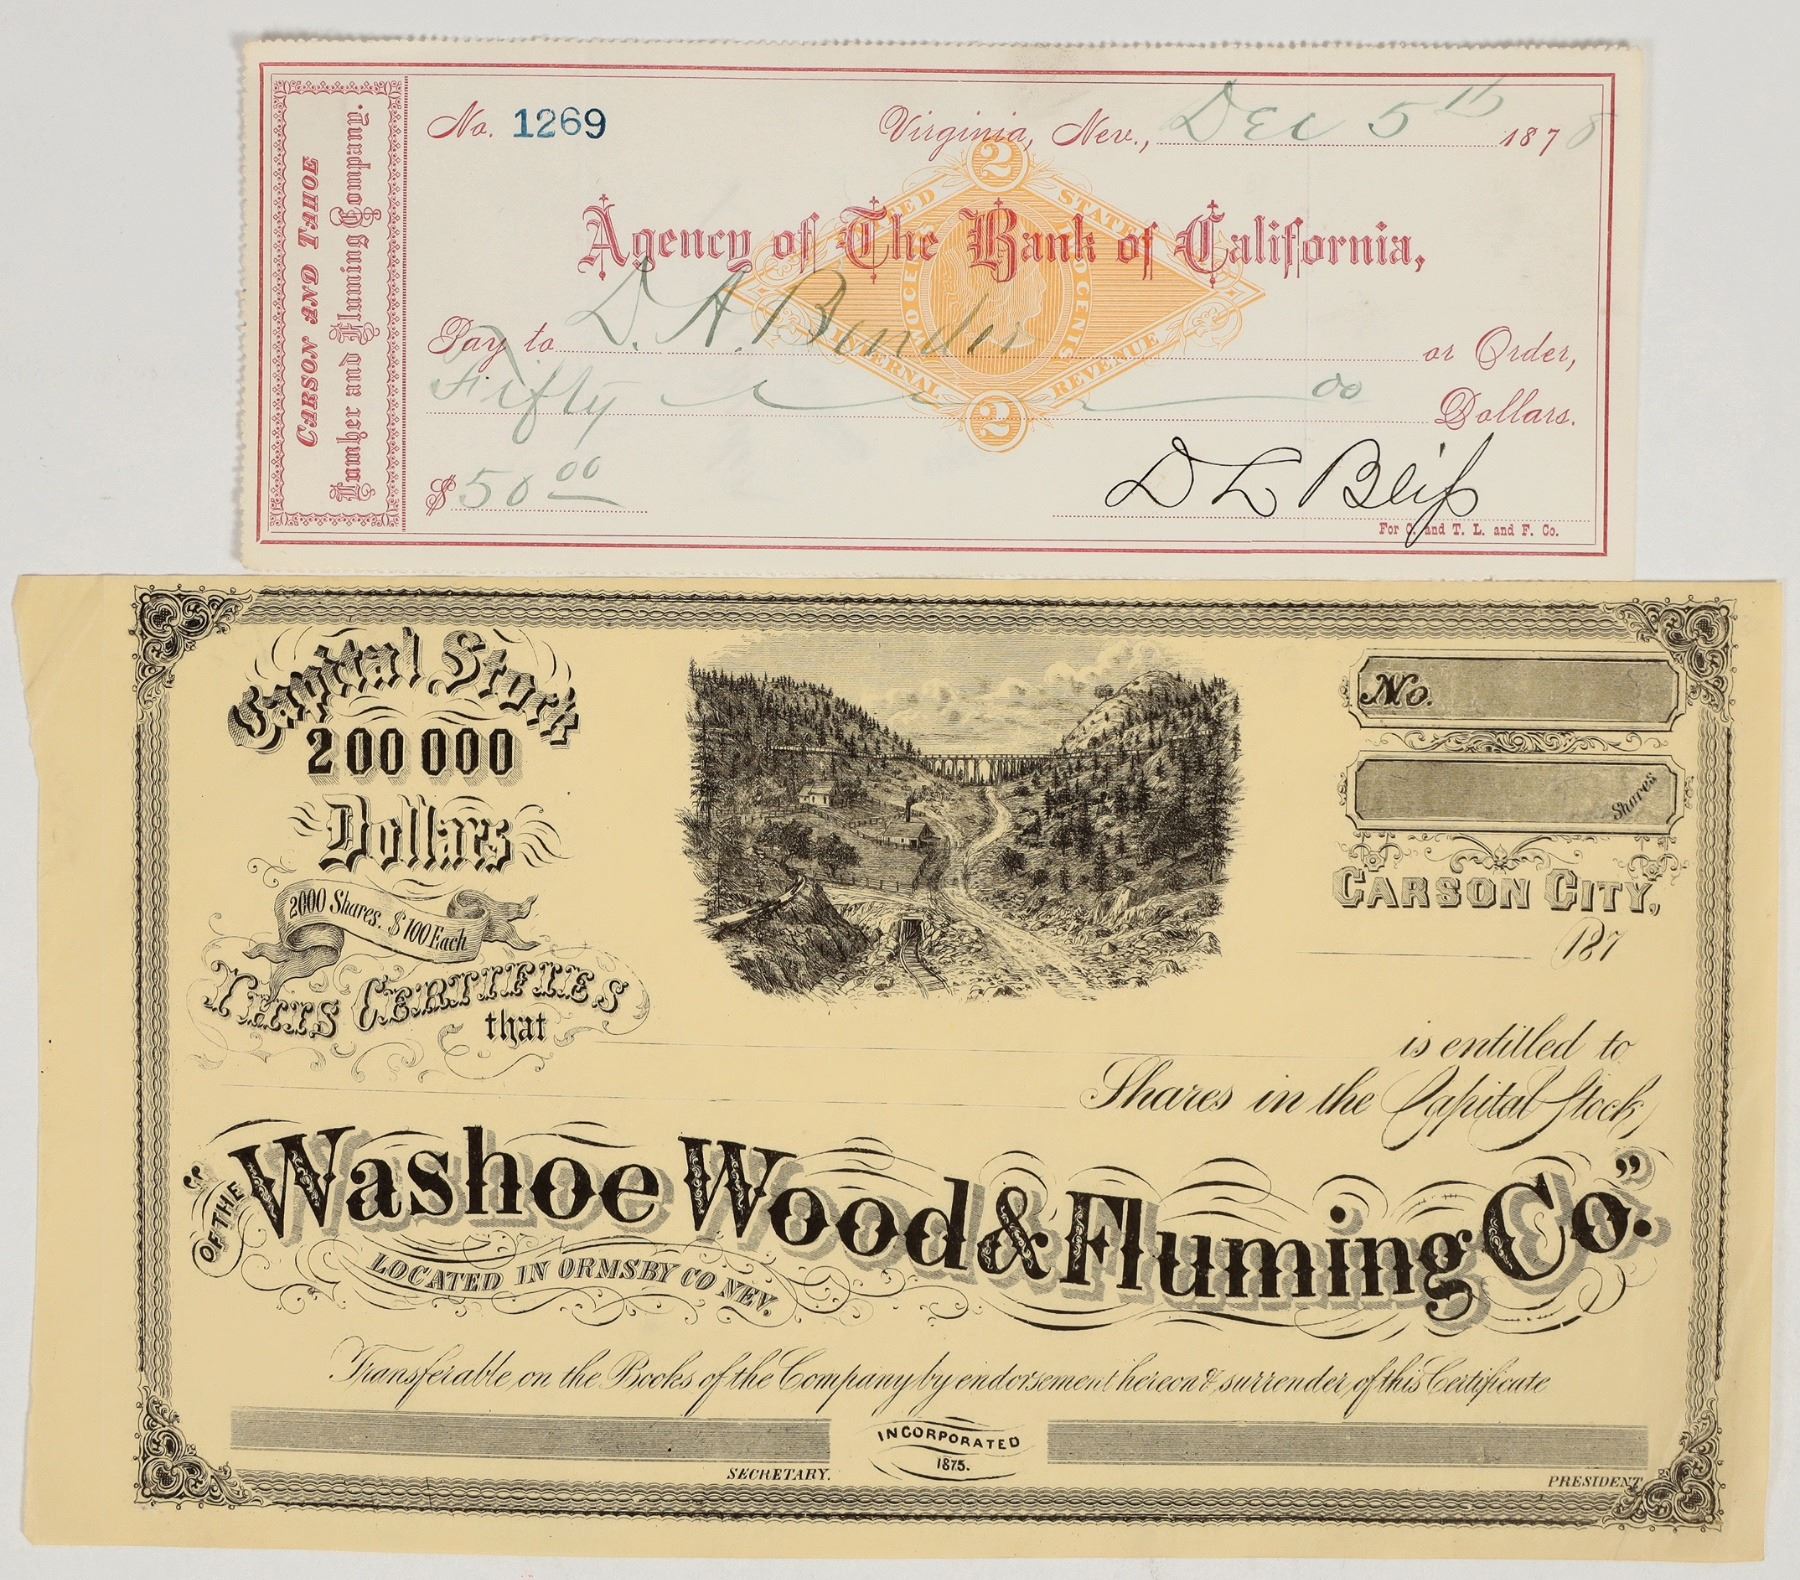 CARSON AND TAHOE
Lumber and Fluming Company.
No. 1269
Virginia, Nev., Dec 5th 1878
2
UNITED STATES
Agency of The Bank of California,
TWO CENTS
TWO CENTS
Pay to D. A. Bender or Order,
INTERNAL REVENUE
Fifty 00 Dollars.
2
$ 50 00
D L Bliss
For C. and T. L. and F. Co.
Capital Stock
200000
Dollars
2000 Shares. $100 Each
No.
Shares
CARSON CITY,
187
THIS CERTIFIES
that is entitled to
Shares in the Capital Stock,
OF THE "Washoe Wood & Fluming Co."
LOCATED IN ORMSBY CO NEV.
Transferable on the Books of the Company by endorsement hereon & surrender of this Certificate
INCORPORATED
1875.
SECRETARY.
PRESIDENT